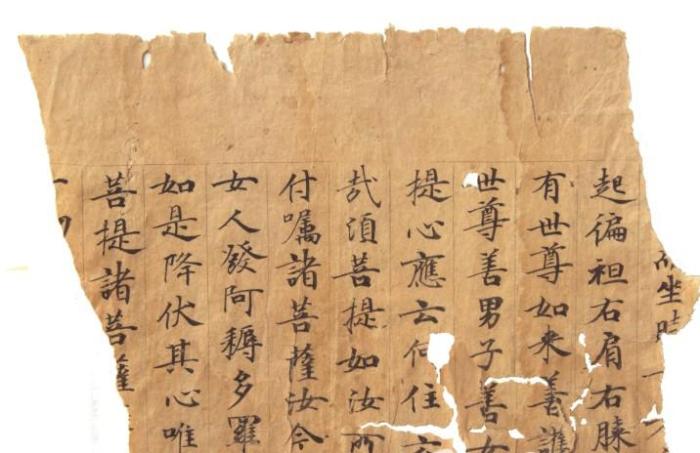 坐時
起徧袒右肩右膝
有世尊如来善護
世尊善男子善女
提心應云何住云
哉須菩提如汝所
付嘱諸菩薩汝今
女人發阿耨多羅
如是降伏其心唯
菩提諸菩薩